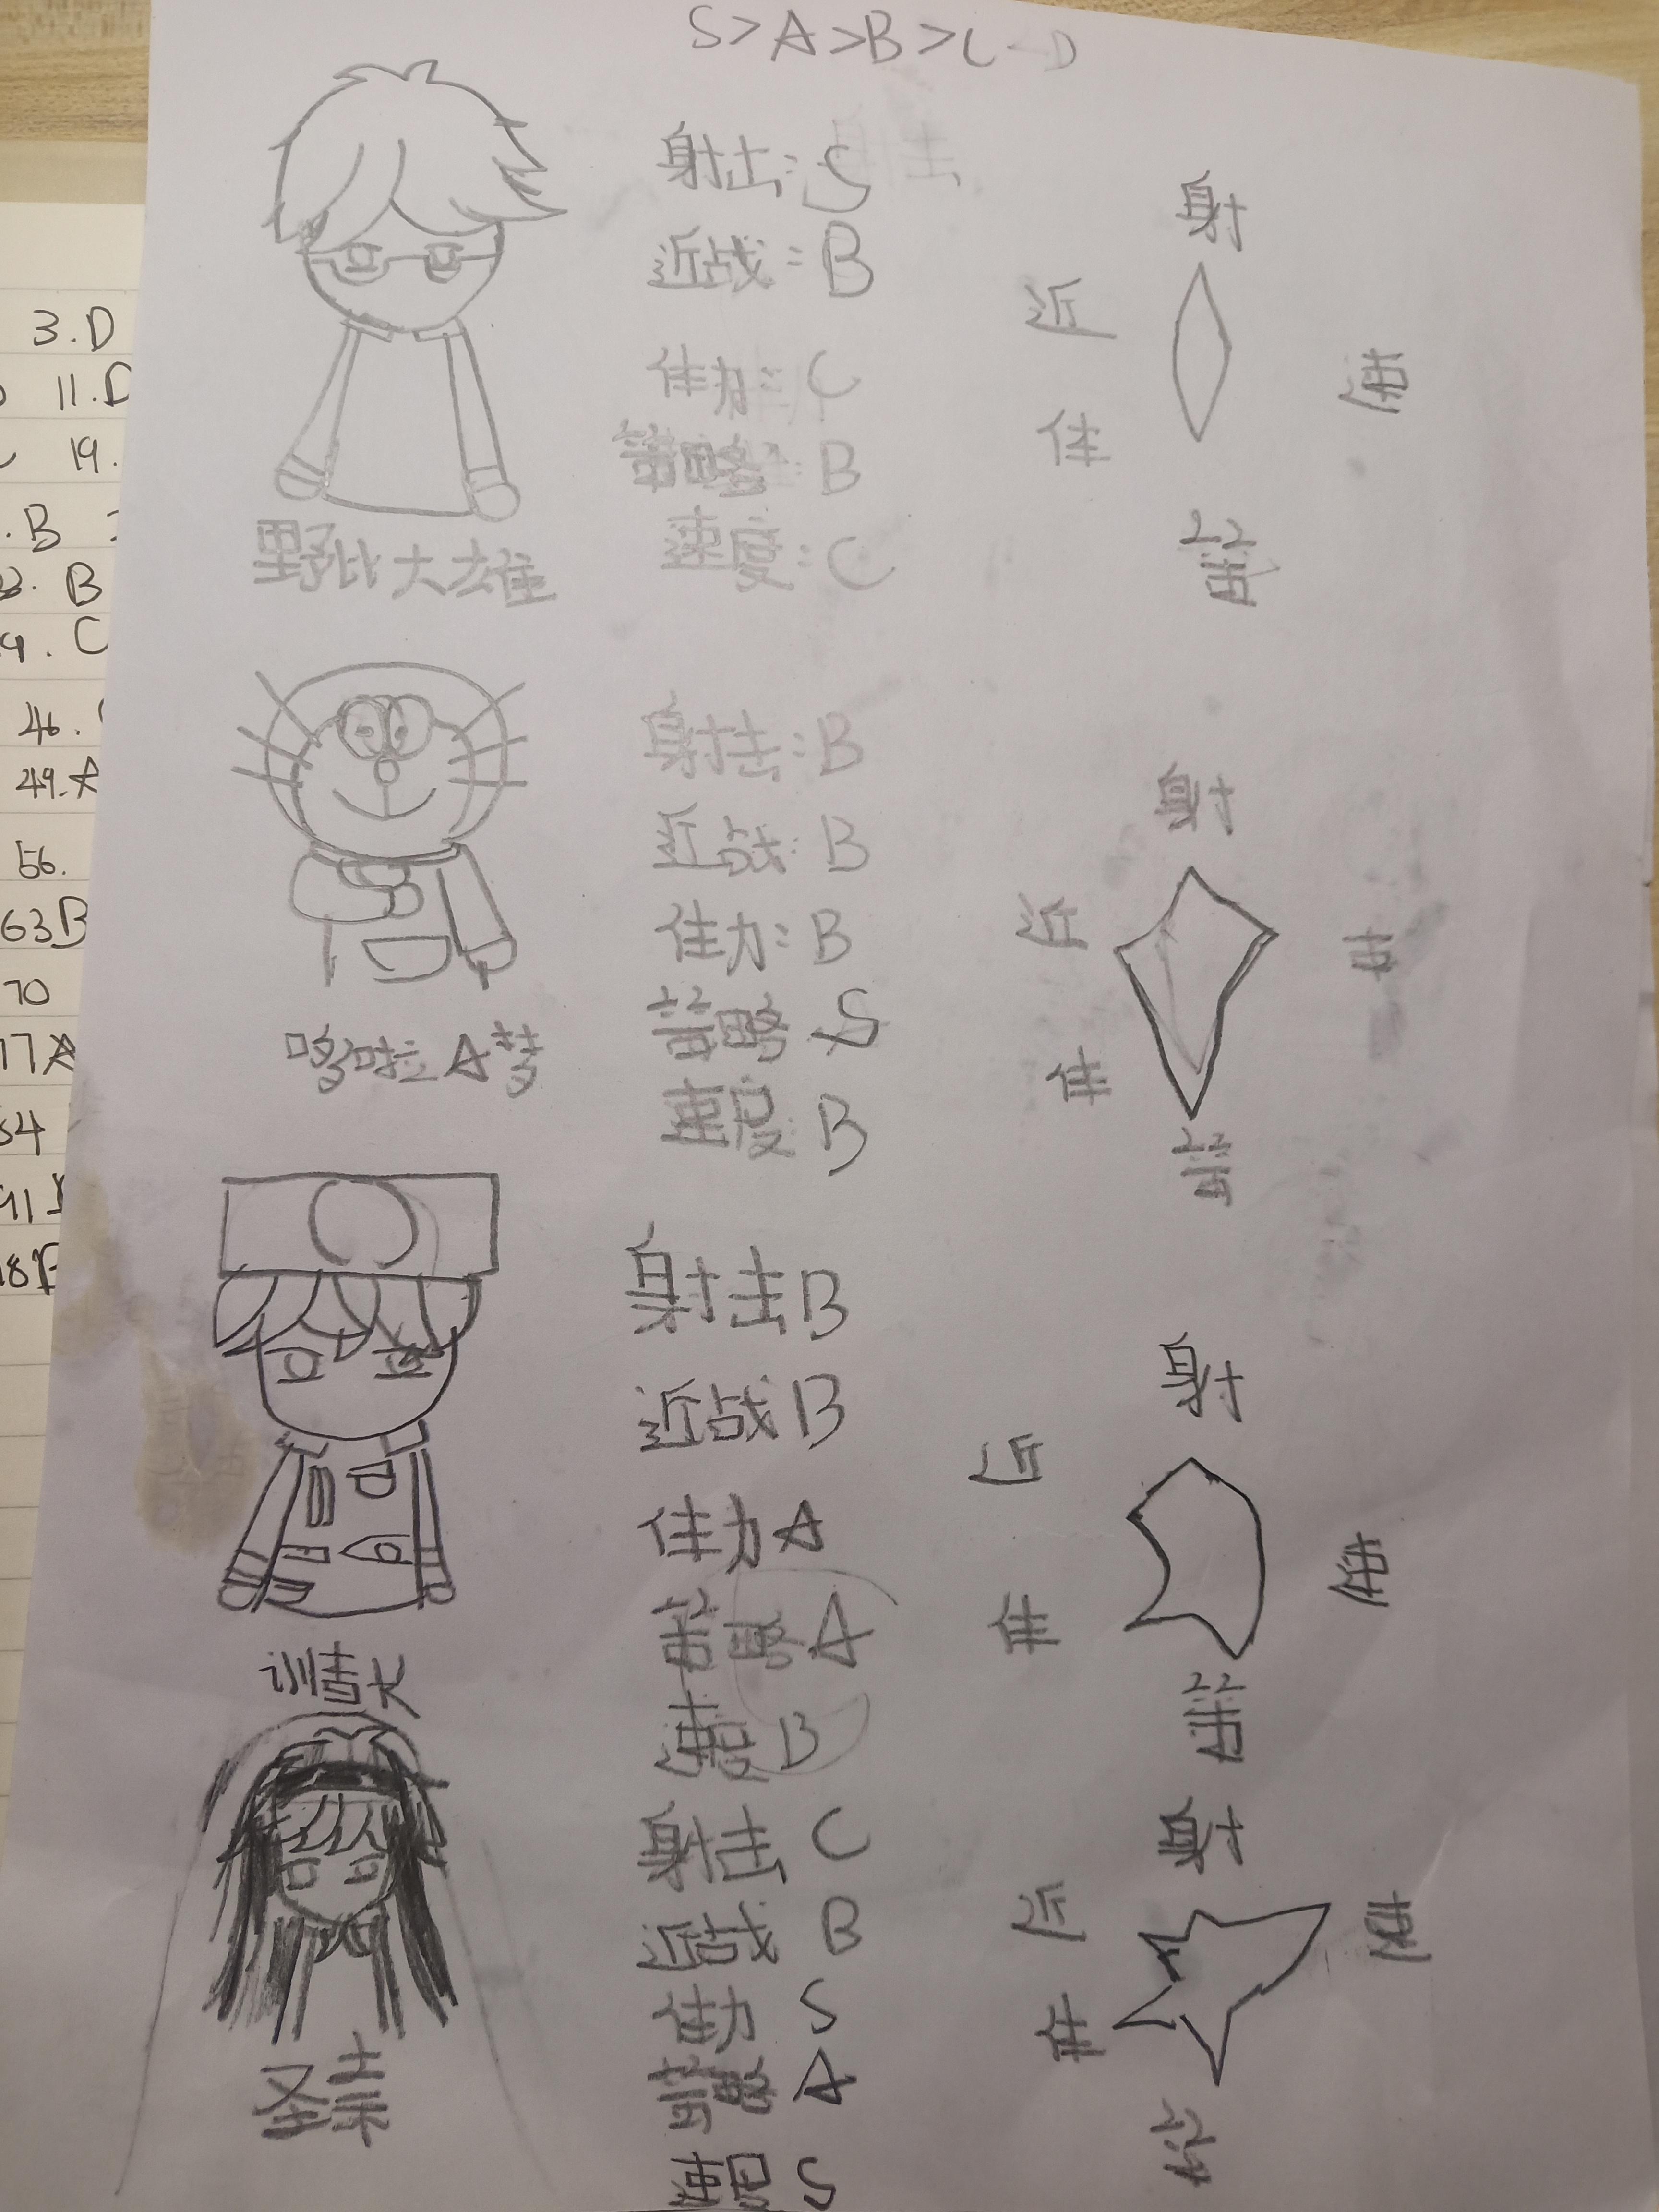 S>A>B>C-D
射击:S
近战:B
体力:C
策略:B
速度:C
野比大雄
射
近
速
体
策
射击:B
近战:B
体力:B
策略 S
速度 B
哆啦A梦
射
近
速
体
策
射击B
近战B
体力A
策略A
速度B
射
近
速
体
策
射击 C
近战 B
体力 S
策略 A
速度 S
射
近
速
体
策
3.D
11.D
19.
B
B
9. C
46.
49.A
56.
63B
70
77A
54
91
18B